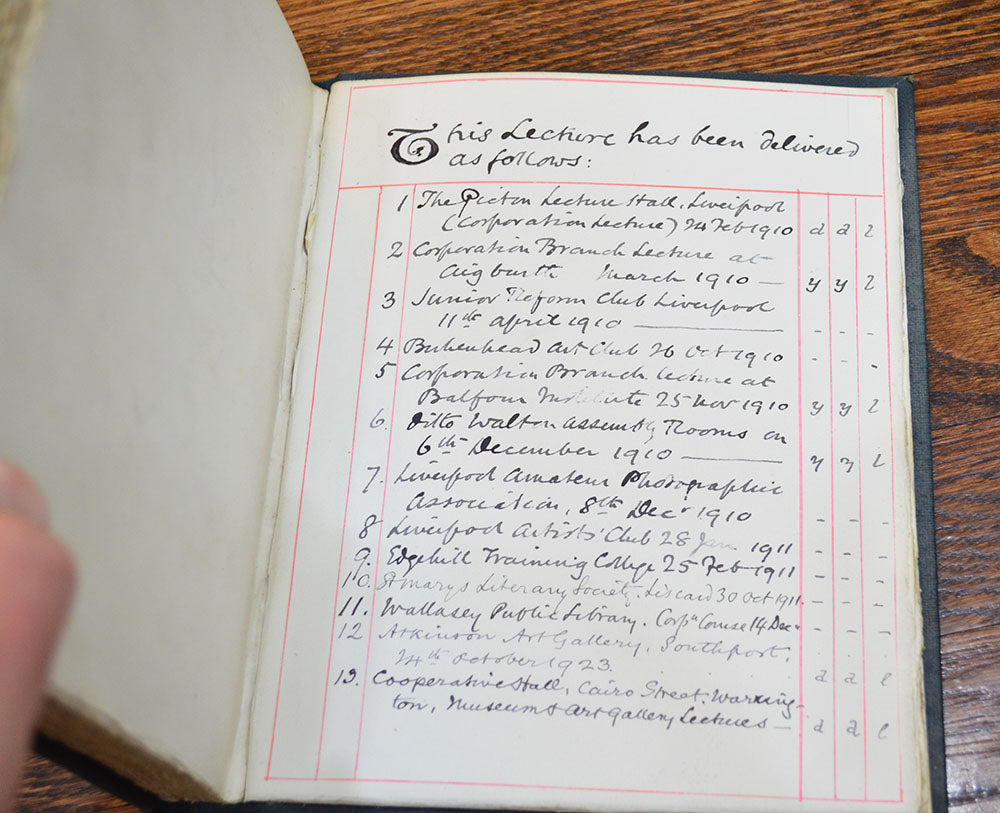 This Lecture has been delivered
as follows:
1 The Picton Lecture Hall, Liverpool
(Corporation Lecture) 24 Feb 1910 d d l
2 Corporation Branch Lecture at
Aigburth March 1910 — y y l
3 Junior Reform Club Liverpool
11th April 1910 — - - -
4 Birkenhead Art Club 26 Oct 1910 - - -
5 Corporation Branch lecture at
Balfour Institute 25 Nov 1910 y y l
6. Ditto Walton Assembly Rooms on
6th December 1910 — y y l
7. Liverpool Amateur Photographic
Association, 8th Decr 1910 - - -
8 Liverpool Artists' Club 28 Jan 1911 - - -
9. Edgehill Training College 25 Feb 1911 - - -
10. St Marys Literary Society. Liscard 30 Oct 1911. - - -
11. Wallasey Public Library. Corpn Course 14 Decr - - -
12 Atkinson Art Gallery, Southport,
24th October 1923. d d l
13. Cooperative Hall, Cairo Street. Warring-
ton, Museum & Art Gallery Lectures — d d l